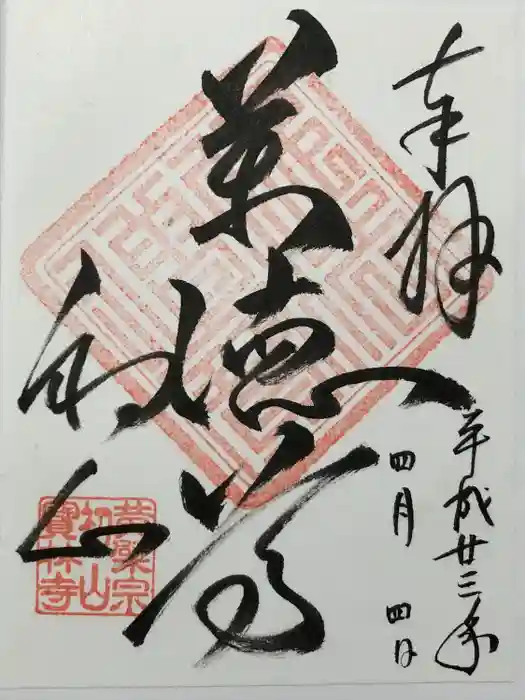 奉拝
平成廿三年
四月四日
萬徳尊
初山
黄檗宗
初山
寳林寺